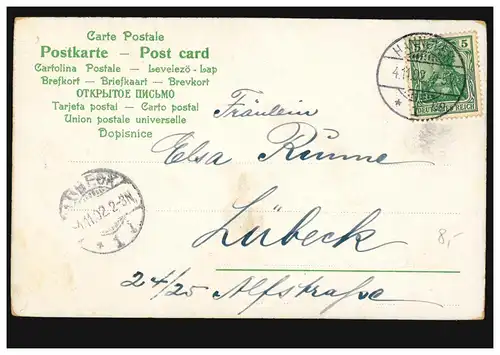 Carte Postale
Postkarte — Post card
Cartolina Postale — Levelező-Lap
Brefkort — Briefkaart — Brevkort
ОТКРЫТОЕ ПИСЬМО
Tarjeta postal — Carto postal
Union postale universelle
Dopisnice
5
DEUTSCHES REICH
Fräulein
Elsa Runne
Lübeck
24/25 Alfstraße
4.11.02.2-3N.
1
8,-